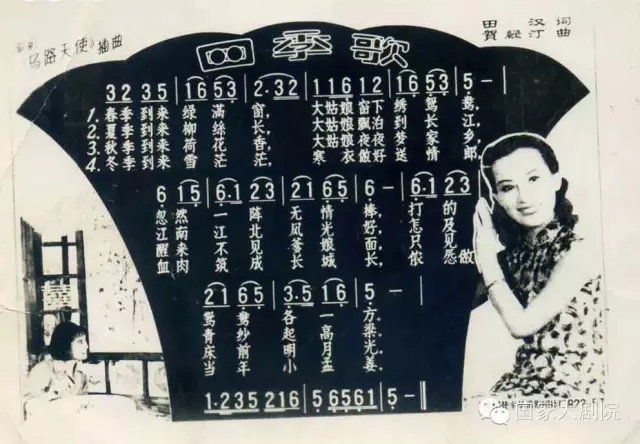 《马路天使》插曲
四季歌
田汉 词
贺绿汀 曲
3 2 3 5 | 1 6 5 3 | 2 · 3 2 | 1 1 6 1 2 | 1 6 5 3 | 5 — |
1. 春季到来 绿满窗, 大姑娘窗下绣鸳鸯,
2. 夏季到来 柳丝长, 大姑娘飘泊到长江,
3. 秋季到来 荷花香, 大姑娘夜夜梦家乡,
4. 冬季到来 雪茫茫, 寒衣做好送情郎,
6 1 5 | 6 · 1 2 3 | 2 1 6 5 | 6 — | 6 · 1 2 3 |
忽然一阵无情棒, 打的
江南江北风光好, 怎及
醒来不见爹娘面, 只见
血肉筑成长城长, 侬愿做
2 1 6 5 | 3 · 5 1 6 | 5 · — |
鸳鸯各一方.
青纱起高梁.
床前明月光.
当年小孟姜.
1 · 2 3 5 2 1 6 | 5 · 6 5 6 1 | 5 — ‖
国家大剧院